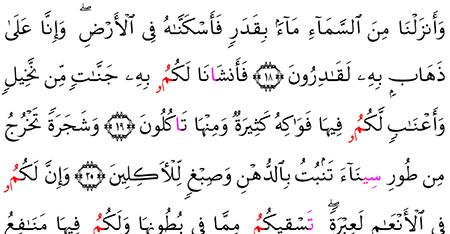 وَأَنزَلْنَا مِنَ السَّمَآءِ مَآءَۢ بِقَدَرٖ فَأَسْكَنَّٰهُ فِى الْأَرْضِۖ وَإِنَّا عَلَىٰ
ذَهَابِۭ بِهِۦ لَقَٰدِرُونَ ١٨ فَأَنشَانَا لَكُمُۥ بِهِۦ جَنَّٰتٖ مِّن نَّخِيلٖ
وَأَعْنَٰبٖ لَّكُمُۥ فِيهَا فَوَٰكِهُ كَثِيرَةٞ وَمِنْهَا تَاكُلُونَ ١٩ وَشَجَرَةٗ تَخْرُجُ
مِن طُورِ سِينَآءَ تَنۢبُتُ بِالدُّهْنِ وَصِبْغٖ لِّلْأٓكِلِينَ ٢٠ وَإِنَّ لَكُمُۥ
فِى الْأَنْعَٰمِ لَعِبْرَةٗۖ تَسْقِيكُمُۥ مِمَّا فِى بُطُونِهَا وَلَكُمُۥ فِيهَا مَنَٰفِعُ